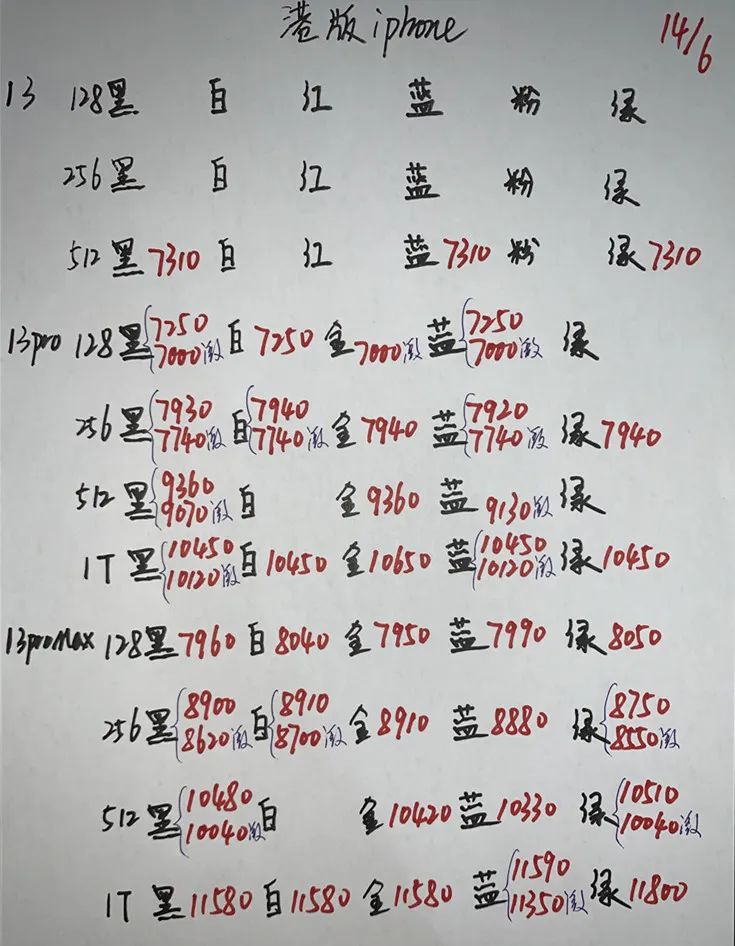 港版iphone 14/6
13 128黑 白 红 蓝 粉 绿
256黑 白 红 蓝 粉 绿
512黑7310 白 红 蓝7310 粉 绿7310
13pro 128黑{7250 7000激 白7250 金7000激 蓝{7250 7000激 绿
256黑{7930 7740激 白{7940 7740激 金7940 蓝{7920 7740激 绿7940
512黑{9360 9070激 白 金9360 蓝9130激 绿
1T黑{10450 10120激 白10450 金10650 蓝{10450 10120激 绿10450
13proMax 128黑7960 白8040 金7950 蓝7990 绿8050
256黑{8900 8620激 白{8910 8700激 金8910 蓝8880 绿{8750 8550激
512黑{10480 10040激 白 金10420 蓝10330 绿{10510 10040激
1T黑11580 白11580 金11580 蓝{11590 11350激 绿11800